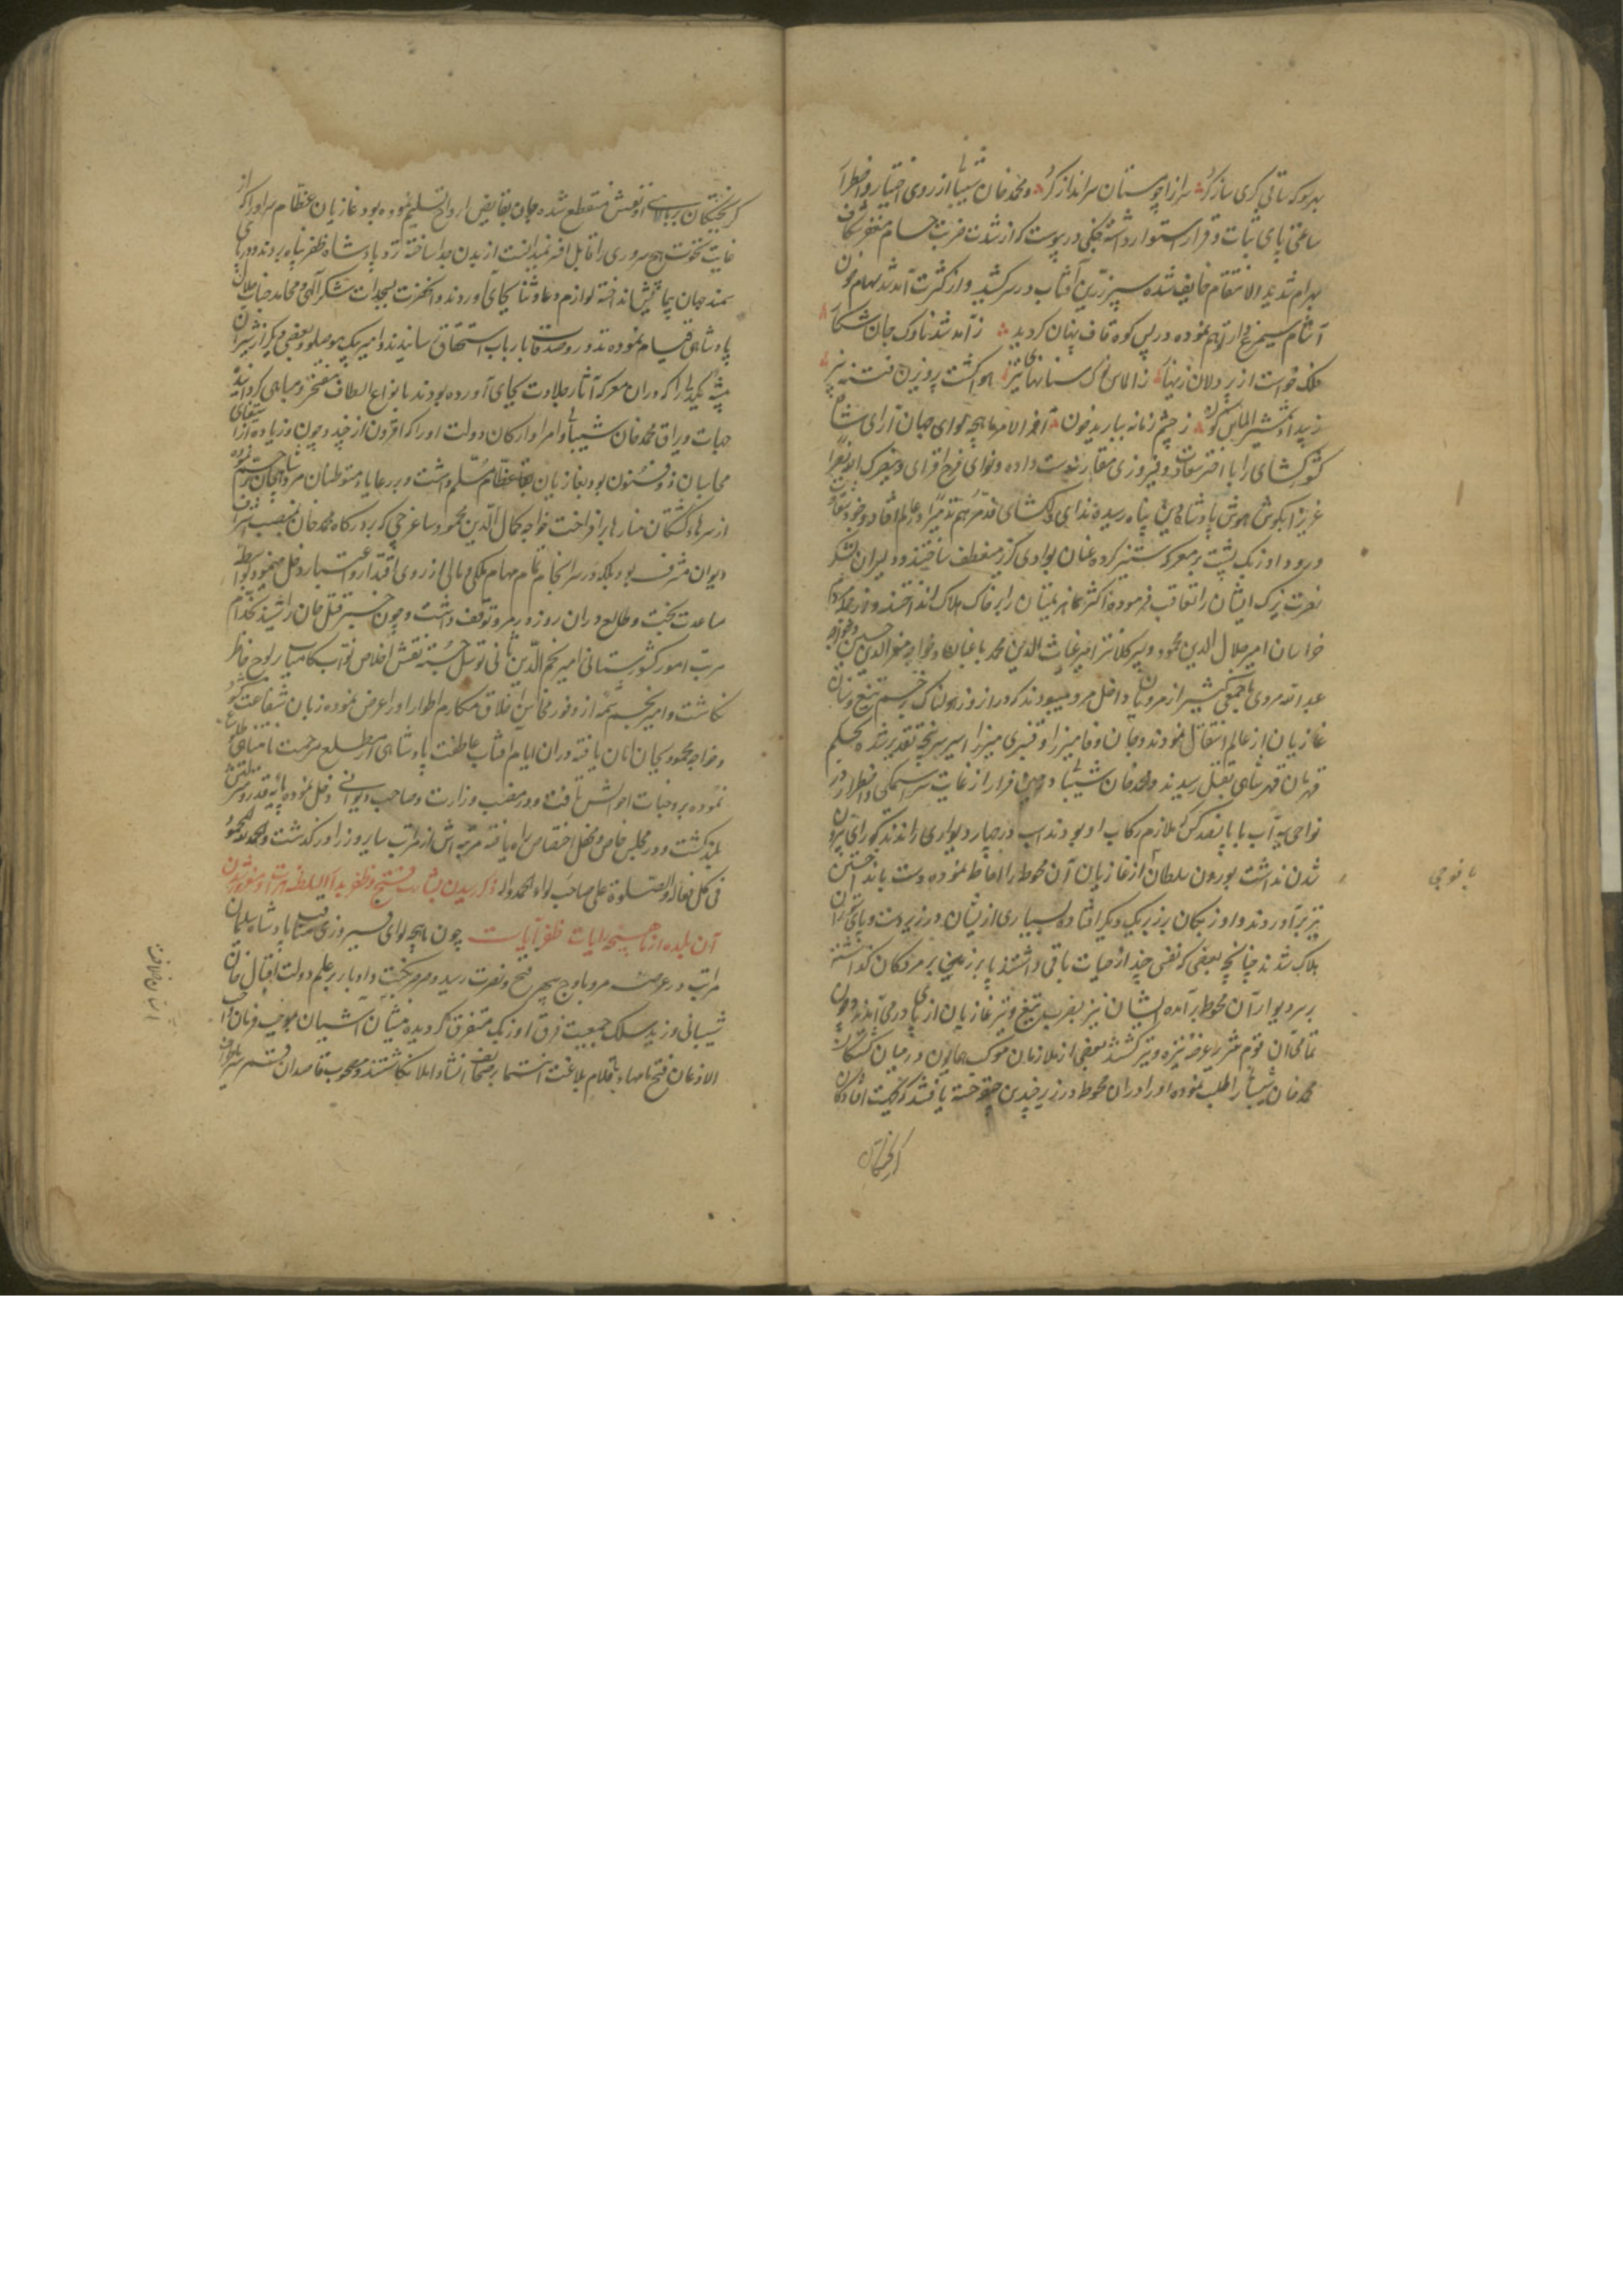 بهر سو که ساقی کری ساز کرد سر از پا چو مستان سرانداز کرد و محمد خان شیبانی از روی اختیار و اضطرار
ساعتی پای ثبات و قرار استوار داشته جنگی در پیوست که از شدت ضرب حسام مغفر شکاف
بهرام شدید الانتقام خایف شده سپر زرین آفتاب در سر کشید و از کثرت آمد شد سهام خون
آشام سیمرغ وار توهم نموده در پس کوه قاف پنهان کردید ز آمد شد ناوک جان شکار
فلک خواست از پر دلان زینهار ز الماس نوک سنانهای تیز هوا کشت پرویزن فتنه بیز
ز بیداد شمشیر الماس کون ز چشم زمانه ببارید خون آخر الامر ماهچه لوای جهان آرای شاه
کشورکشای را با اختر سعادت و فیروزی مقارنه دست داده و نوای فرح افزای و ینصرک الله نصرا
عزیزا بکوش هوش پادشاه دین پناه رسیده ندای دلکشای فدمرناهم تدمیرا در عالم افتاد و جنود
اوزبک پشت بر معرکه ستیز کرده عنان بوادی کریز منعطف ساختند و دلیران لشکر
نصرت یزک ایشان را تعاقب فرموده اکثر منهزمان را بر خاک هلاک انداختند و از حکام
خراسان امیر جلال الدین محمود و میر کلانتر امیر غیاث الدین محمد باغبان و خواجه معز الدین حسین و خواجه
عبد الله مروی با جمعی کثیر از مرویان داخل مرو میبودند که در از روز هولناک بزخم تیغ و سنان
غازیان از عالم انتقال نمودند و جان وفا میرزا و قنبری میرزا اسیر سرپنجه تقدیر شده بحکم
قهرمان قهر شاهی بقتل رسیدند و محمد خان شیبانی در حین فرار از غایت سراسیمکی و اضطرار در
نواحی پل آب با پانصد کس که ملازم رکاب او بودند اسب در چهار دیواری راندند که رای بیرون
شدن نداشت بورون سلطان از غازیان آن محوطه را احاطه نموده دست بانداختن
تیر برآوردند و اوزبکان بر زبر یکدیکر افتاده بسیاری از ایشان در زیر دست و پای ستوران
هلاک شدند چنانچه بعضی که نفسی چند از حیات باقی داشتند پا بر زین بر مردکان کذاشته
بر سر دیوار آن محوطه برآمده ایشان نیز بضرب تیغ و تیر غازیان از پای درمی آمدند و چون
تمامی آن قوم شریر عرضه نیزه و تیر کشتند بعضی از ملازمان موکب همایون در میان کشتکان
محمد خان شیبانی را طلب نموده او را در آن محوطه در زیر چندین جثه خسته یافتند که از کثرت افتادن
کریختکان
با فوجی
کریختکان بر بالای او نفسش منقطع شده جان بقابض ارواح تسلیم نموده بود غازیان عظام سر او را که از
غایت نخوت هیچ سروری را قابل افسر نمیدانست از بدن جدا ساخته نزد پادشاه ظفر پناه بردند و در پای
سمند جهان پیمایش انداخته لوازم دعا و ثنا بجای آوردند و انحضرت بسجدات شکر الهی و محامد جناب جلال
پادشاهی قیام نموده نذور و صدقات بارباب استحقاق رسانیدند و امیر بیک موصلو و بعضی دیکر از شیران
بیشه یکدلی را که در ان معرکه آثار جلادت بجای آورده بودند بانواع الطاف مفتخر و مباهی کردانید
جهات و یراق محمد خان شیبانی و امرا و ارکان دولت او را که افزون از چند و چون و زیاده از استیفای
محاسبان ذو فنون بود بغازیان عظام مسلم داشت و بر رعایا و متوطنان مرو شاهجان ترحم نموده
از سرهای کشتکان منارها برافراخت خواجه کمال الدین محمود ساغرجی که در درکاه محمد خان بمنصب اشراف
دیوان مشرف بود بلکه در سر انجام تمام مهام ملکی و مالی از روی اقتدار و اعتبار دخل مینمود بواسطه
مساعدت بخت و طالع در ان روز در مرو توقف داشت و چون خبر قتل خان را شنید کلام
مرتب امور کشورستانی امیر نجم الدین ثانی توسل جسته نقش اخلاص نواب کامیاب بر لوح خاطر
نکاشت و امیر نجم شمه از وفور محاسن اخلاق و مکارم اطوار او را عرض نموده زبان شفاعت کشود
و خواجه محمود بجان امان یافته در ان ایام آفتاب عاطفت پادشاهی از مطلع مرحمت نامتناهی طلوع
نموده بر وجنات احوالش تافت و در منصب وزارت و صاحب دیوانی دخل نموده پایه قدر و منزلتش
بلند کشت و در مجلس خاص و محفل اختصاص راه یافته مرتبه اش از مراتب سایر وزرا در کذشت و الحمد لله المحمود
فی کل فعاله و الصلوة علی صاحب لواء الحمد و آله ذکر رسیدن بشارت فتح و ظفر بدار السلطنه هرات و منور شدن
آن بلده از ماهیچه رایات ظفر آیات چون ماهچه لوای فیروزی اقتباس پادشاه سلیمان
مراتب در عرصه مرو باوج سپهر فتح و نصرت رسید و صرصر نکبت و ادبار بر علم دولت اقبال خان
شیبانی وزید سلک جمعیت فرق اوزبک متفرق کردیده منشیان آشیان بموجب فرمان واجب
الاذعان فتح نامها باقلام بلاغت انتما بر صحایف انشا و املا نکاشتند و مصحوب قاصدان قمر سیر باطراف